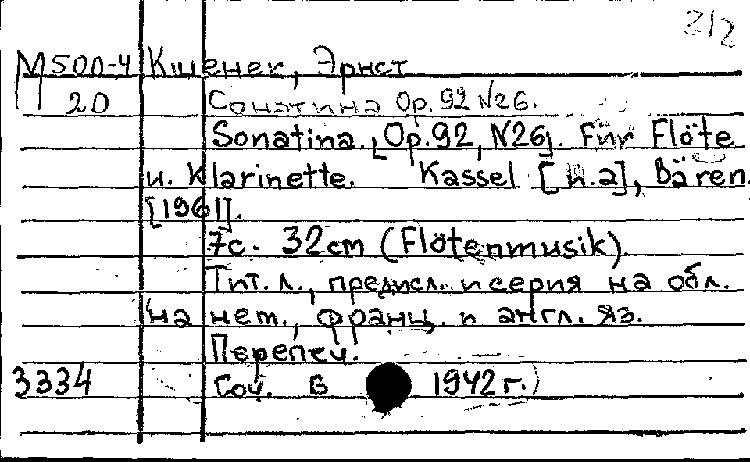 2/2
М500-4 Кшенек, Эрнст
20 Сонатина Op. 92 N2б.
Sonatina. [Op. 92, N2б]. Für Flöte
u. Klarinette. Kassel [u.a], Bären
[1961].
7с. 32cm (Flötenmusik).
Тит. л., предисл. и серия на обл.
на нем., франц. и англ. яз.
Перепеч.
3334 Соч. в 1942 г.)